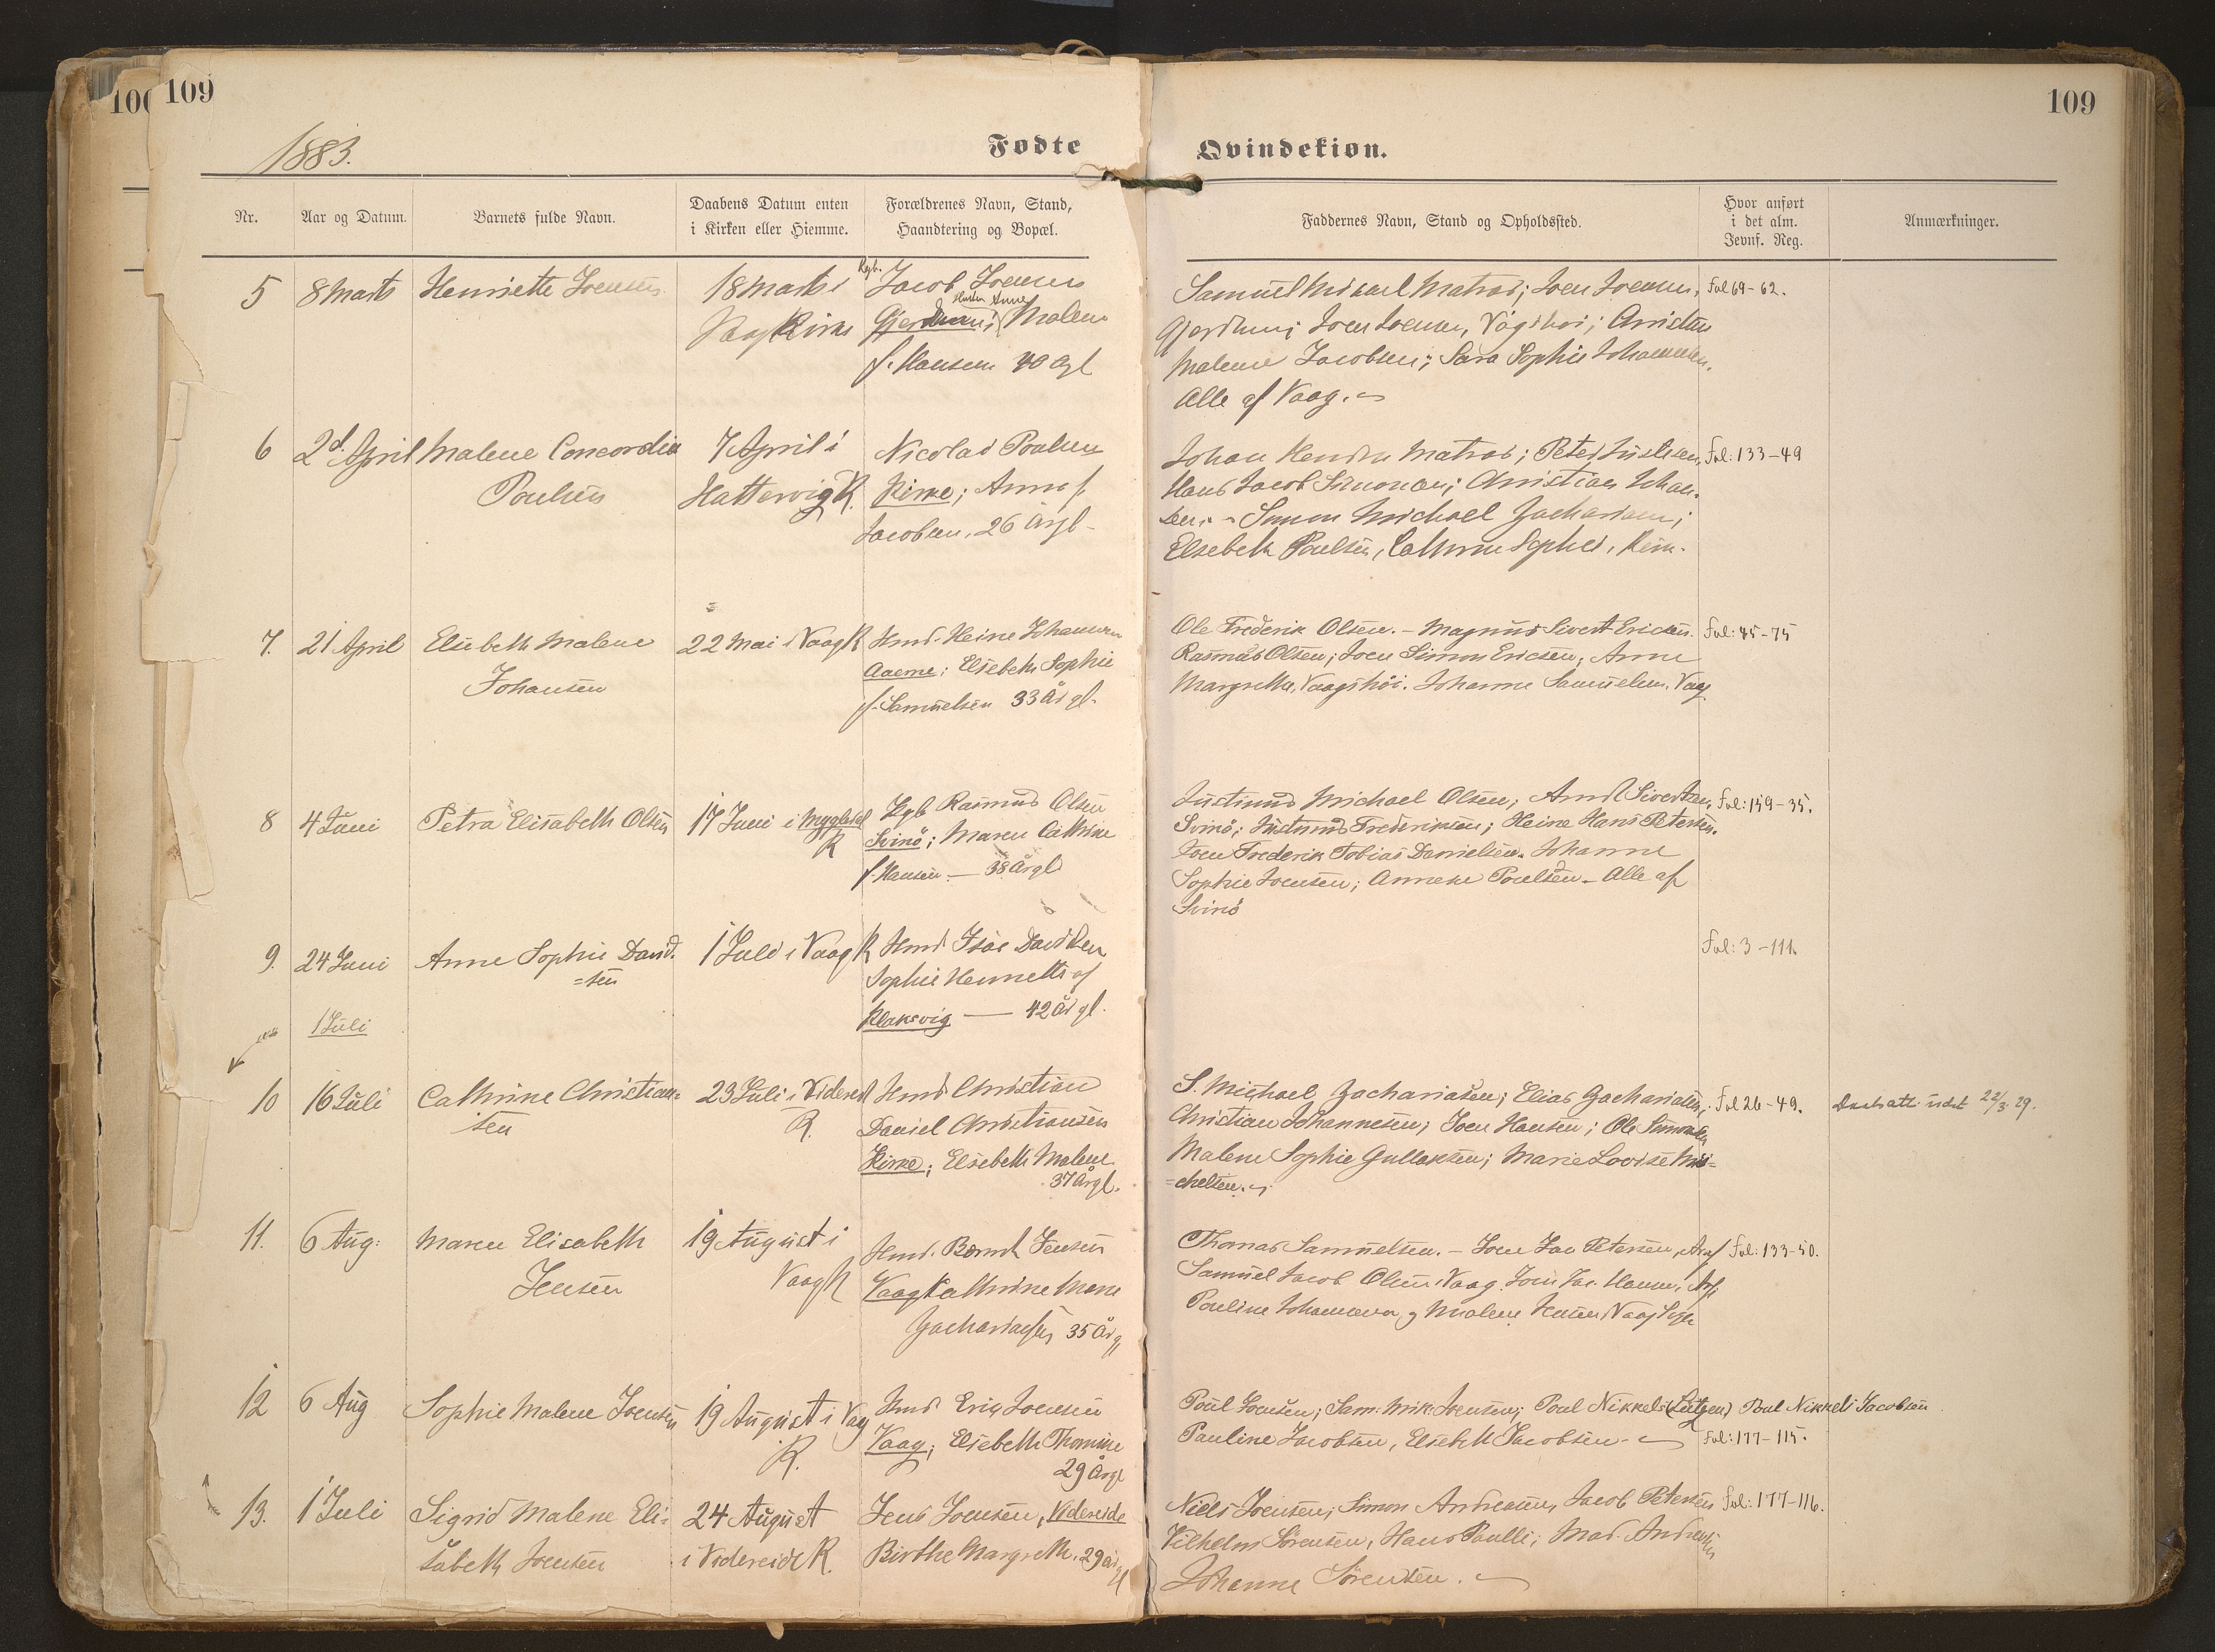 109
109
1883.
Fødte
Qvindekiøn.
Nr.
Aar og Datum.
Barnets fulde Navn.
Daabens Datum enten
i Kirken eller Hiemme.
Forældrenes Navn, Stand,
Haandtering og Bopæl.
Faddernes Navn, Stand og Opholdssted.
Hvor anført
i det alm.
Jevnf. Reg.
Anmærkninger.
5
8 Marts
Henriette Joensen
18 Marts i
Vaag Kirke
Jacob Joensen
Hustru Anne
Malene
f. Hansen 40 Aar gl
Samuel Mikael Matras; Joen Joensen,
Joen Joensen, Vágshøi;
Malene Jacobsen; Sara Sophie Johannesen.
Alle af Vaag.
Fol 69-62.
6
2d April
Malene Concordia
Poulsen
7 April i
Hattervig K.
Nicolas Poulsen
Kirke; Anna f.
Jacobsen, 26 Aar gl-
Johan Hendr. Matras; Peter Justesen,
Hans Jacob Simonsen; Christian Johan-
sen - Simon Michael Zachariasen;
Elsebeth Poulsen, Cathrine Sophie, Kirk.
Fol: 133-49
7.
21 April
Elsebeth Malene
Johansen
22 Mai i Vaag K
Hmd. Heine Johansen
Aaerne; Elsebeth Sophie
f. Samuelsen 33 Aar gl.
Ole Frederik Olsen. - Magnus Sivert Ericsen.
Rasmus Olsen; Joen Simon Ericsen, Anne
Margretha, Vaagshøi. Johanne Samuelsen. Vaag
Fol: 45-75
8
4 Juni
Petra Elisabeth Olsen
17 Juni i Mygledal
K
Kgb Rasmus Olsen
Svinö; Maren Cathrine
f. Hansen - 38 Aar gl
Justinus Michael Olsen; Sivertsen,
Svinö; Justinus Frederiksen; Heine Hans Petersen.
Joen Frederik Tobias Danielsen. Johanne
Sophie Joensen; Anneke Poulsen - Alle af
Svinö
Fol: 159-35.
9.
24 Juni
Anne Sophie David-
=sen
1 Juli i Vaag K
Hmd. Isac Davidsen
Sophie Henriette af
Klaksvig - 42 Aar gl.
Fol: 3-111.
1 Juli
10
16 Juli
Cathrine Christian=
sen
23 Juli i Videreid
K.
Hmd. Christian
Daniel Christiansen
Kirke; Elsebeth Malene
37 Aar gl.
S. Michael Zachariasen; Elias Zachariasen;
Christian Johannesen; Joen Hansen; Ole Simonsen
Malene Sophie Gullaksen; Marie Lovise Mi=
=chelsen.
Fol 26-49.
Daabsatt. udst 22/3 29.
11.
6 Aug:
Maren Elisabeth
Jensen
19 August i
Vaag K
Hmd. Jensen
Vaag Kathrine Marie
Zachariasen, 35 Aar gl
Thomas Samuelsen. - Joen Jac Petersen,
Samuel Jacob Olsen, Vaag. Joen Jac. Hansen,
Pouline Johannesen og Malene Vaag
Fol: 133-50.
12
6 Aug
Sophie Malene Joensen
19 August i Vaag
K.
Hmd Eric Joensen
Vaag; Elsebeth Thomine
29 Aar gl
Poul Joensen; Sam: Mik Joensen; Poul Nikkels (Lützen) Poul Nikkels Jacobsen
Pauline Jacobsen, Elsebeth Jacobsen
Fol: 177-115.
13.
1 Juli
Sigrid Malene Eli=
sabeth Joensen
24 August
i Videreide K.
Jens Joensen, Videreide
Birthe Margreth. 29 Aar gl
Niels Joensen; Simon Andreasen, Jacob Petersen
Vilhelm Sörensen, Hans Poulli; Mad. Andreasen
Johanne Sörensen.
Fol: 177-116.